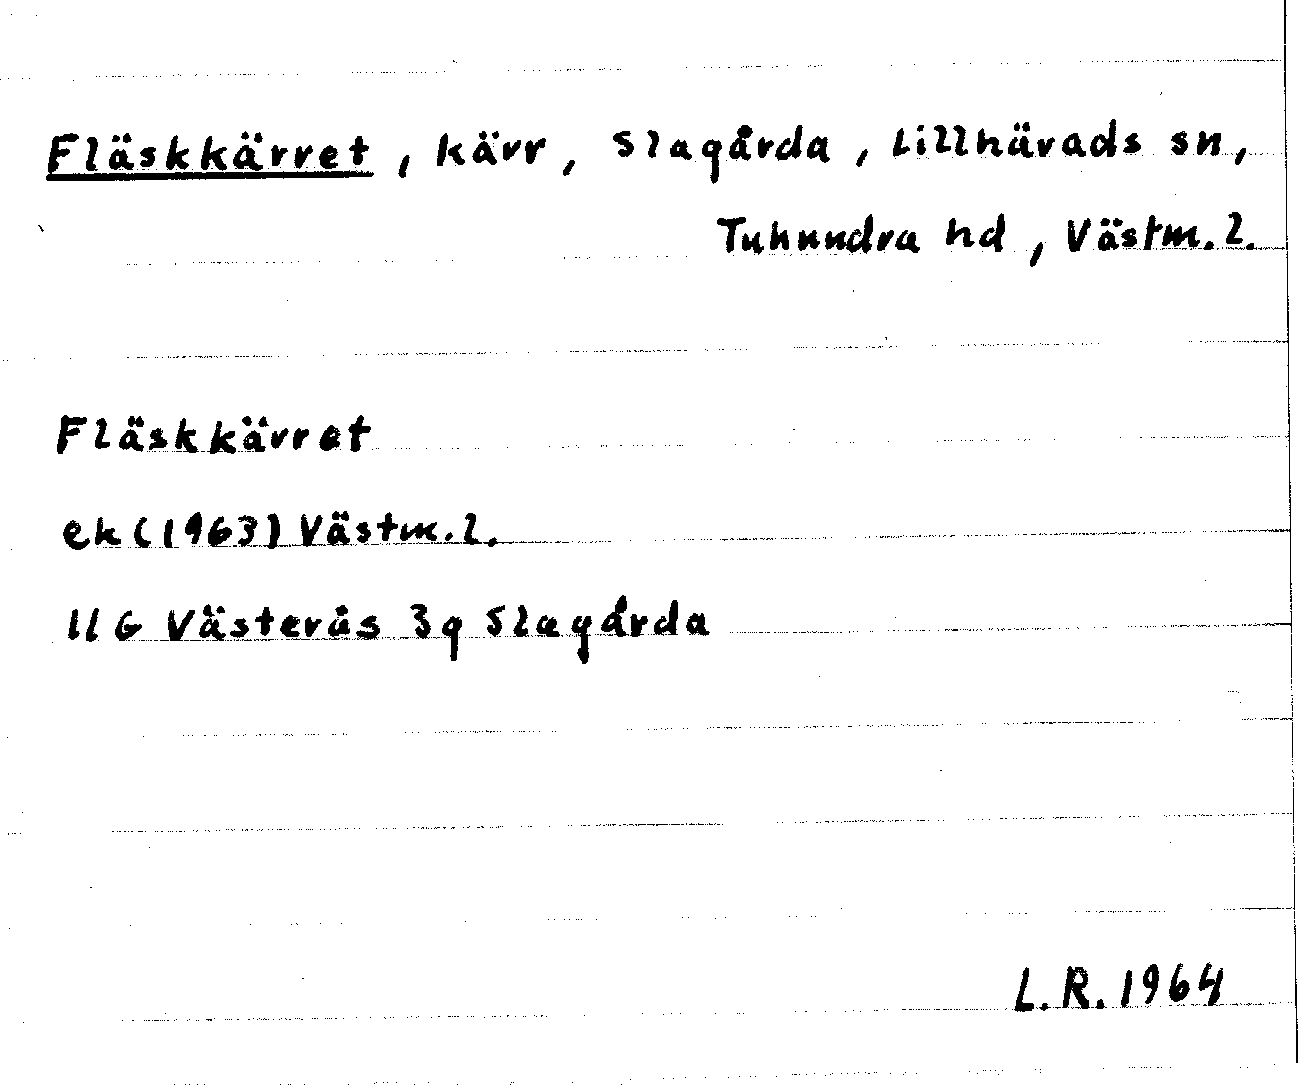 Fläskkärret, kärr, Slagårda, Lillhärads sn,
Tuhundra hd, Västm. l.
Fläskkärret
ek (1963) Västm. l.
11 G Västerås 3g Slagårda
L. R. 1964